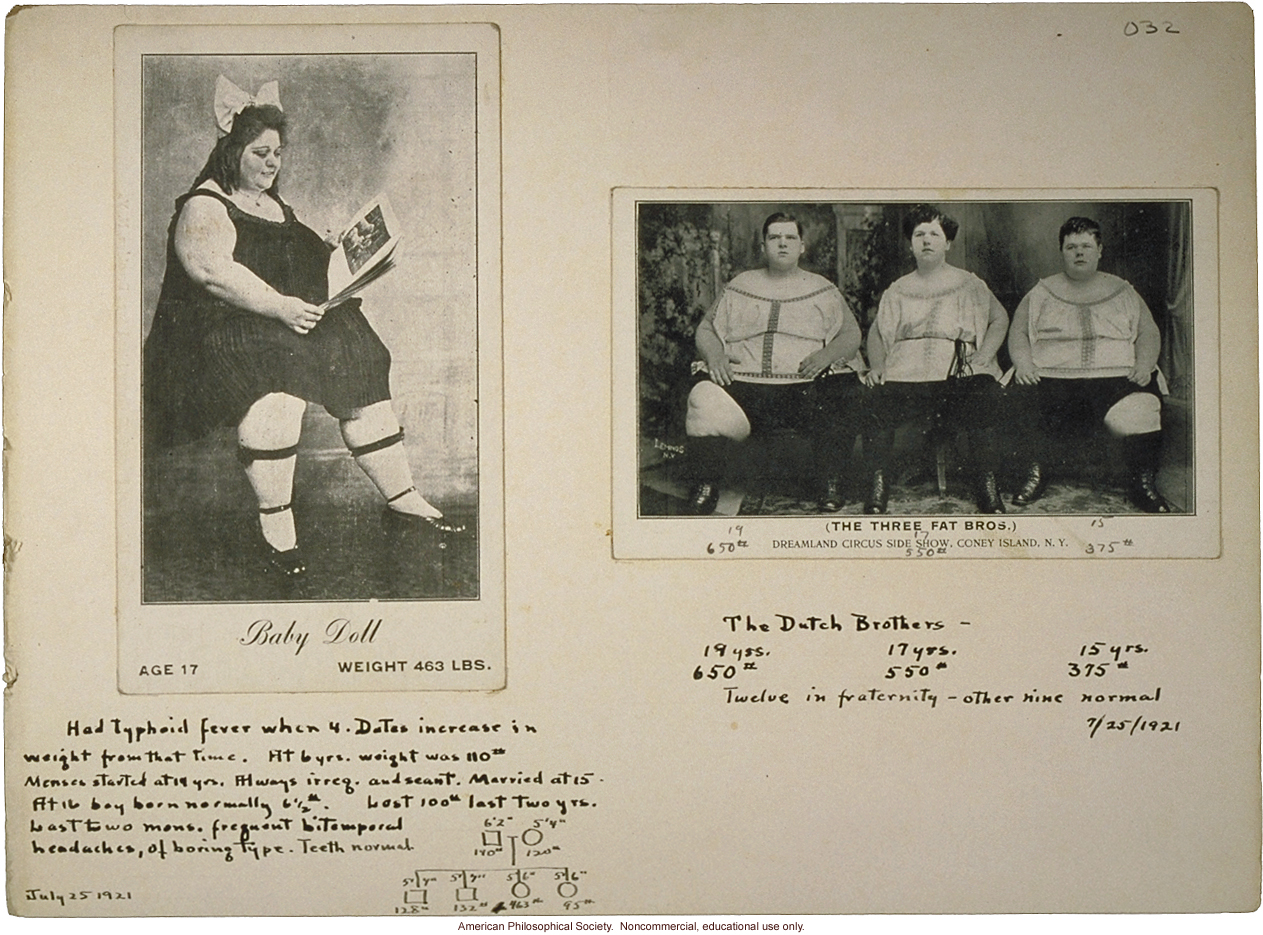 032
Baby Doll
AGE 17 WEIGHT 463 LBS.
Had typhoid fever when 4. Dates increase in
weight from that time. At 6 yrs. weight was 110#
Menses started at 14 yrs. Always irreg. and scant. Married at 15.
At 16 boy born normally 6½#. Lost 100# last two yrs.
Last two mons. frequent bitemporal
headaches, of boring type. Teeth normal
6'2" 5'4"
190# 120#
5'7" 5'7" 5'6" 5'6"
128# 132# 463# 95#
July 25 1921
LENNOS
N.Y.
(THE THREE FAT BROS.)
19 17 15
DREAMLAND CIRCUS SIDE SHOW, CONEY ISLAND, N. Y.
650# 550# 375#
The Dutch Brothers -
19 yrs. 17 yrs. 15 yrs.
650# 550# 375#
Twelve in fraternity - other nine normal
7/25/1921
American Philosophical Society. Noncommercial, educational use only.